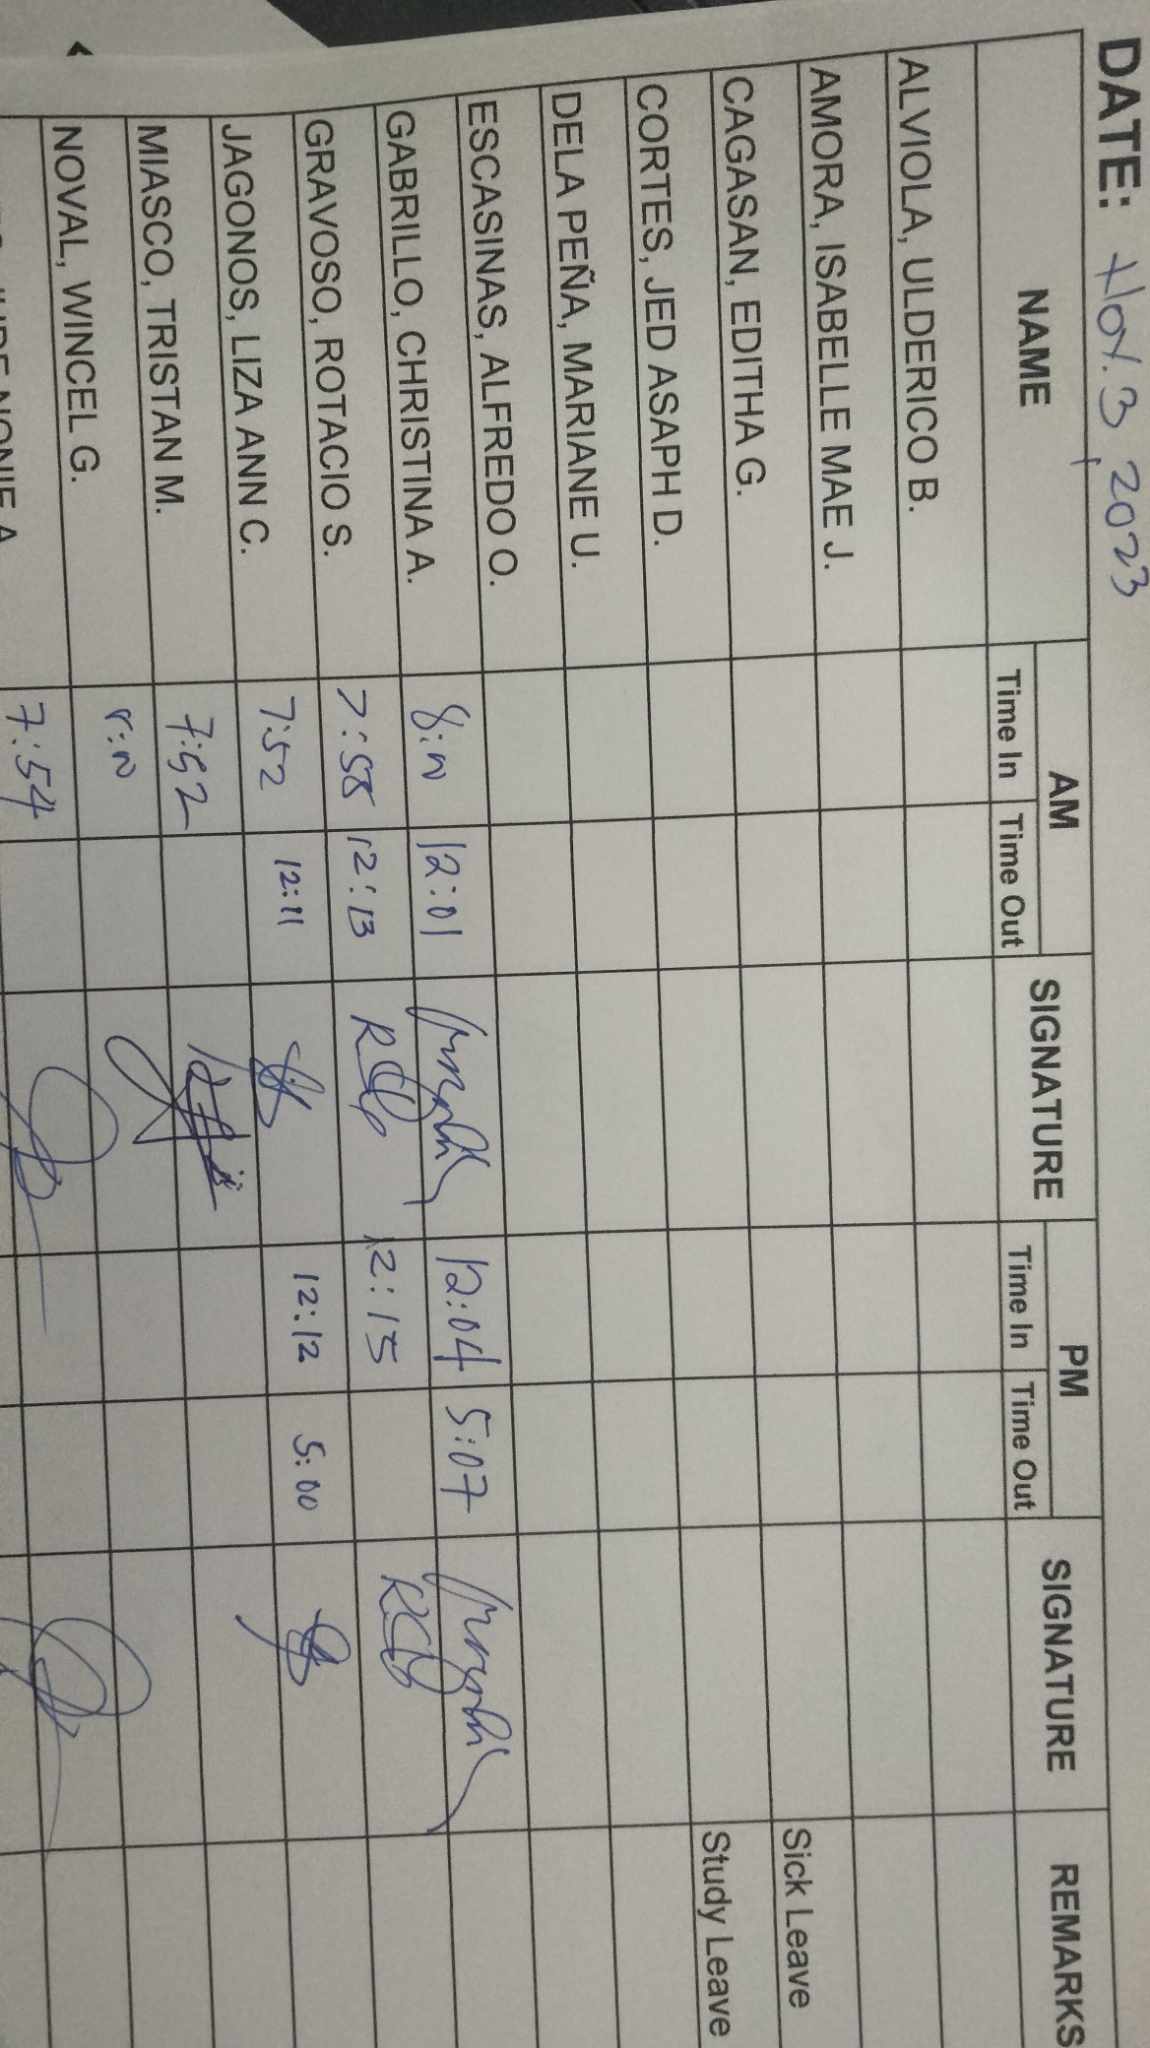 DATE: Nov. 3, 2023
NAME AM SIGNATURE PM SIGNATURE REMARKS
Time In Time Out Time In Time Out
ALVIOLA, ULDERICO B.
AMORA, ISABELLE MAE J.
CAGASAN, EDITHA G. Sick Leave
CORTES, JED ASAPH D. Study Leave
DELA PEÑA, MARIANE U.
ESCASINAS, ALFREDO O.
GABRILLO, CHRISTINA A. 8:00 12:01 12:04 5:07
GRAVOSO, ROTACIO S. 7:58 12:13 12:15
JAGONOS, LIZA ANN C. 7:52 12:11 12:12 5:00
MIASCO, TRISTAN M. 7:52
NOVAL, WINCEL G. 8:00
7:54